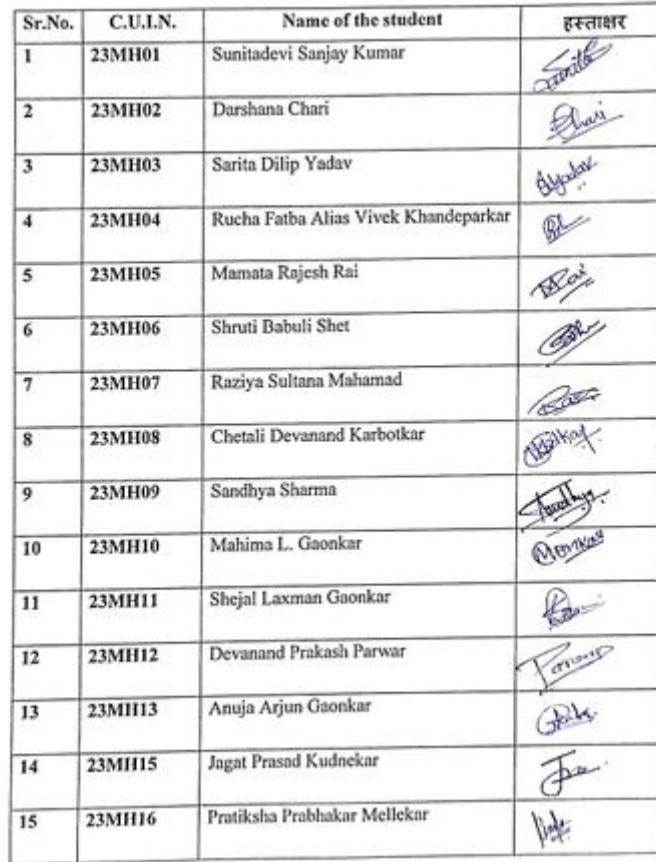 Sr.No. C.U.I.N. Name of the student हस्ताक्षर
1 23MH01 Sunitadevi Sanjay Kumar Sunita
2 23MH02 Darshana Chari Chari
3 23MH03 Sarita Dilip Yadav SYadav
4 23MH04 Rucha Fatba Alias Vivek Khandeparkar
5 23MH05 Mamata Rajesh Rai MRai
6 23MH06 Shruti Babuli Shet
7 23MH07 Raziya Sultana Mahamad
8 23MH08 Chetali Devanand Karbotkar
9 23MH09 Sandhya Sharma Sandhya
10 23MH10 Mahima L. Gaonkar
11 23MH11 Shejal Laxman Gaonkar
12 23MH12 Devanand Prakash Parwar
13 23MH13 Anuja Arjun Gaonkar
14 23MH15 Jagat Prasad Kudnekar
15 23MH16 Pratiksha Prabhakar Mellekar